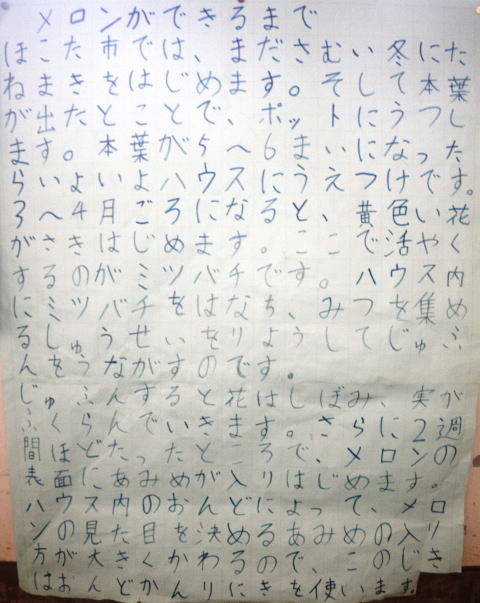 メロンができるまで
ほこた市では、まださむい冬にた
ねまきをはじめます。そして本葉
が出たとことで、ポットにうつし
ます。本葉が5〜6まいになった
らいよいよハウスにうえつけです。
3〜4月ごろになると、黄色い花
がさきはじめます。ここで活やく
するのがミツバチです。ハウス内
にミツバチをはなち、みつを集め
るしゅうせいをりようしてじゅふ
んをうながすのです。
じゅふんすると花はしぼみ、実が
ふくらんでいきます。さらに2週
間ほどたったところで、メロンの
表面にあみめが入りはじめます。
ハウス内のおんどによって、メロ
ンの見た目を決めるあみの入り
方が大きくかわるので、このじき
はおんどかんりにきを使います。